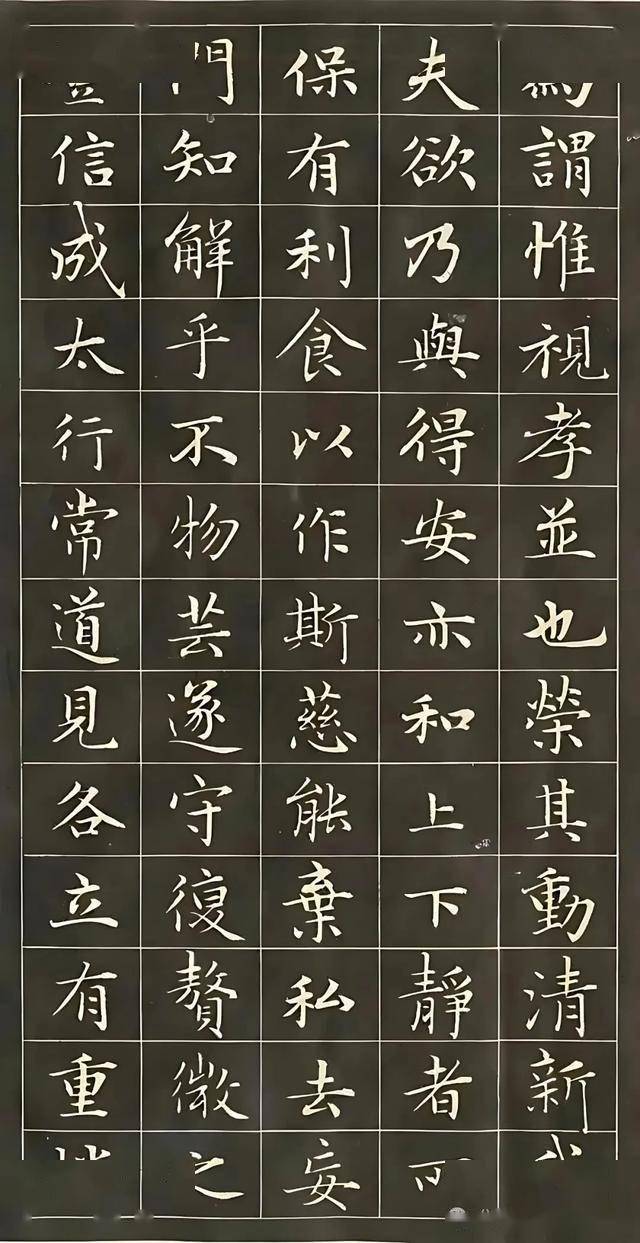 謂惟視孝並也榮其動清新
夫欲乃與得安亦和上下靜者
保有利食以作斯慈能棄私去妄
門知解乎不物芸遂守復贅微之
信成太行常道見各立有重